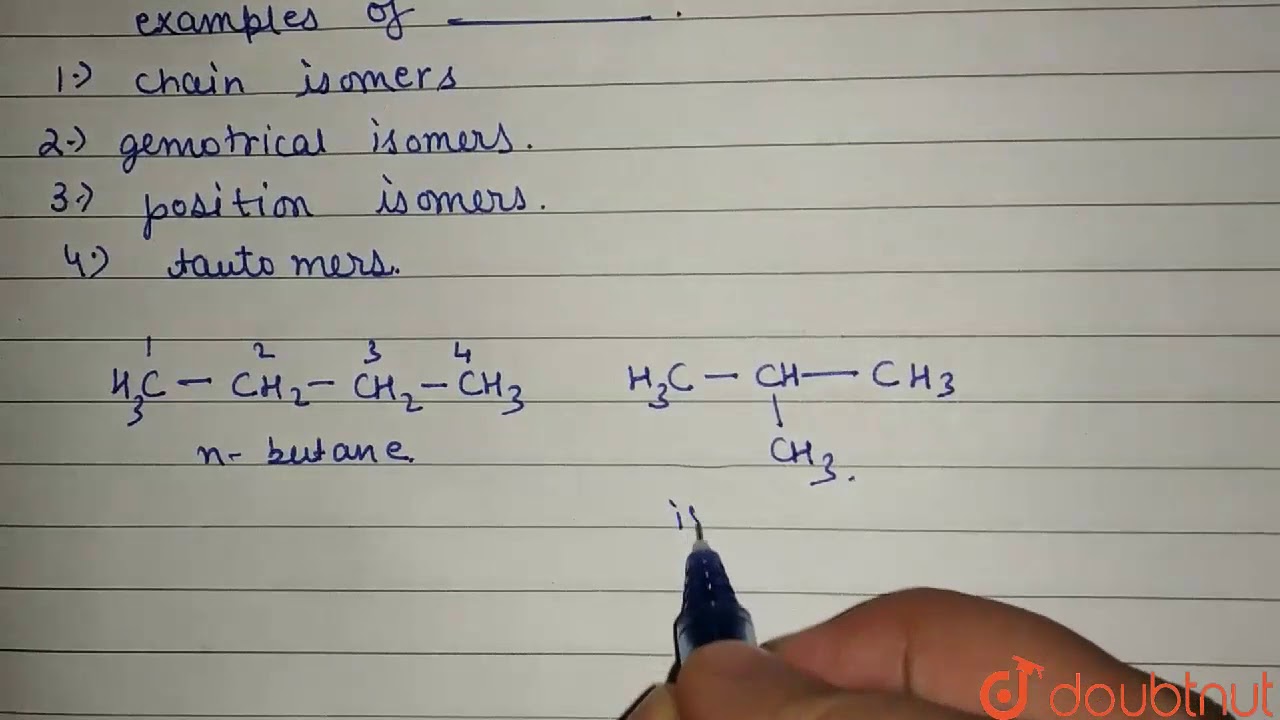 examples of ________ .
1.) chain isomers
2.) gemotrical isomers.
3.) position isomers.
4.) tautomers.
1 2 3 4
H3C - CH2 - CH2 - CH3 H3C - CH - CH3
|
n- butane CH3.
is
doubtnut